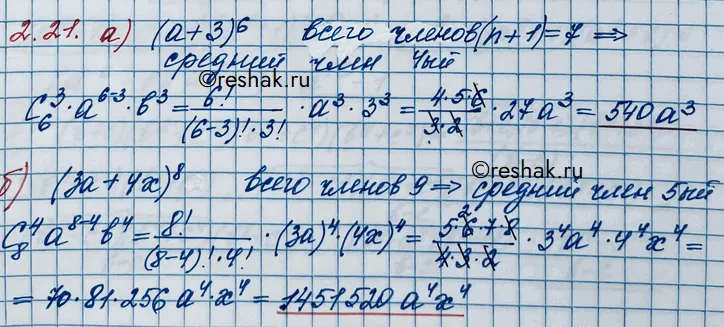 2.21. а) (a+3)⁶ всего членов (n+1)=7 ⇒
средний член 4ый
©reshak.ru
C₆³·a⁶⁻³·b³ = 6!/((6-3)!·3!) · a³·3³ = (4·5·6)/(3·2) · 27a³ = 540a³
©reshak.ru
б) (3a+4x)⁸ всего членов 9 ⇒ средний член 5ый
C₈⁴ a⁸⁻⁴ b⁴ = 8!/((8-4)!·4!) · (3a)⁴·(4x)⁴ = (5·6·7·8)/(4·3·2) · 3⁴a⁴·4⁴x⁴ =
©reshak.ru
= 70·81·256 a⁴·x⁴ = 1451520 a⁴x⁴